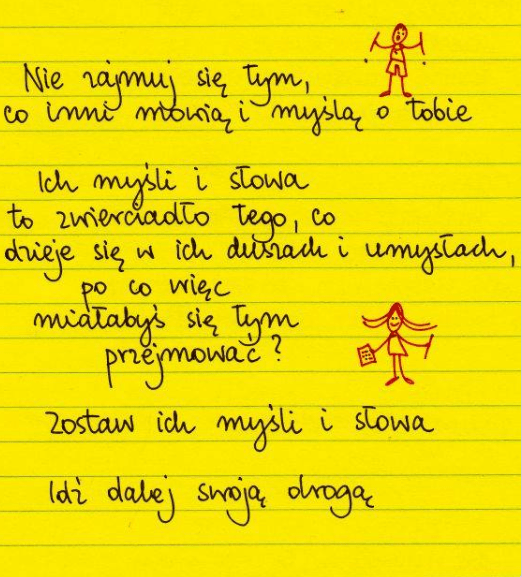 Nie zajmuj się tym,
co inni mówią i myślą o tobie
Ich myśli i słowa
to zwierciadło tego, co
dzieje się w ich duszach i umysłach,
po co więc
miałabyś się tym
przejmować?
Zostaw ich myśli i słowa
Idź dalej swoją drogą